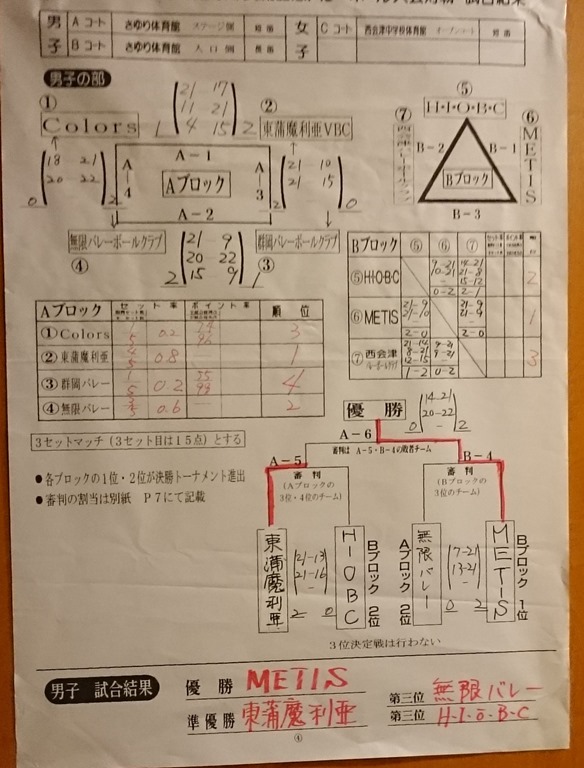 試合結果
男子 Aコート さゆり体育館 ステージ側
Bコート さゆり体育館 入口側
女子 Cコート 西会津中学校体育館
男子の部
① Colors
② 東蒲魔利亜VBC
④ 無限バレーボールクラブ
③ 群岡バレーボールクラブ
1 21 17 11 21 4 15 2
0 18 21 20 22 2
2 21 10 21 15 0
2 21 9 20 22 15 9 1
A-1
A-4
Aブロック
A-3
A-2
⑤ H・I・O・B・C
⑥ METIS
⑦
B-2
B-1
Bブロック
B-3
Bブロック ⑤ ⑥ ⑦
⑤H・I・O・B・C 9-21 10-21 - 0-2 14-21 21-8 15-12 2-1 2
⑥METIS 21-9 21-10 - 2-0 21-9 21-9 - 2-0 1
⑦西会津バレーボールクラブ 21-14 8-21 12-15 1-2 9-21 9-21 - 0-2 3
Aブロック セット率 ポイント率 順位
①Colors 0.2 3
②東蒲魔利亜 0.8 1
③群岡バレー 0.2 4
④無限バレー 0.6 2
3セットマッチ(3セット目は15点)とする
●各ブロックの1位・2位が決勝トーナメント進出
●審判の割当は別紙 P7にて記載
優勝
0 14-21 20-22 - 2
A-6
審判はA-5・B-4の敗者チーム
A-5
B-4
審判
(Aブロックの3位・4位のチーム)
審判
(Bブロックの3位のチーム)
東蒲魔利亜
21-13 21-16 - 2 0
H-I-OBC
Bブロック 2位
Aブロック 2位
無限バレー
17-21 13-21 - 0 2
METIS
Bブロック 1位
3位決定戦は行わない
男子 試合結果
優勝 METIS
準優勝 東蒲魔利亜
第三位 無限バレー
第三位 H・I・O・B・C
④